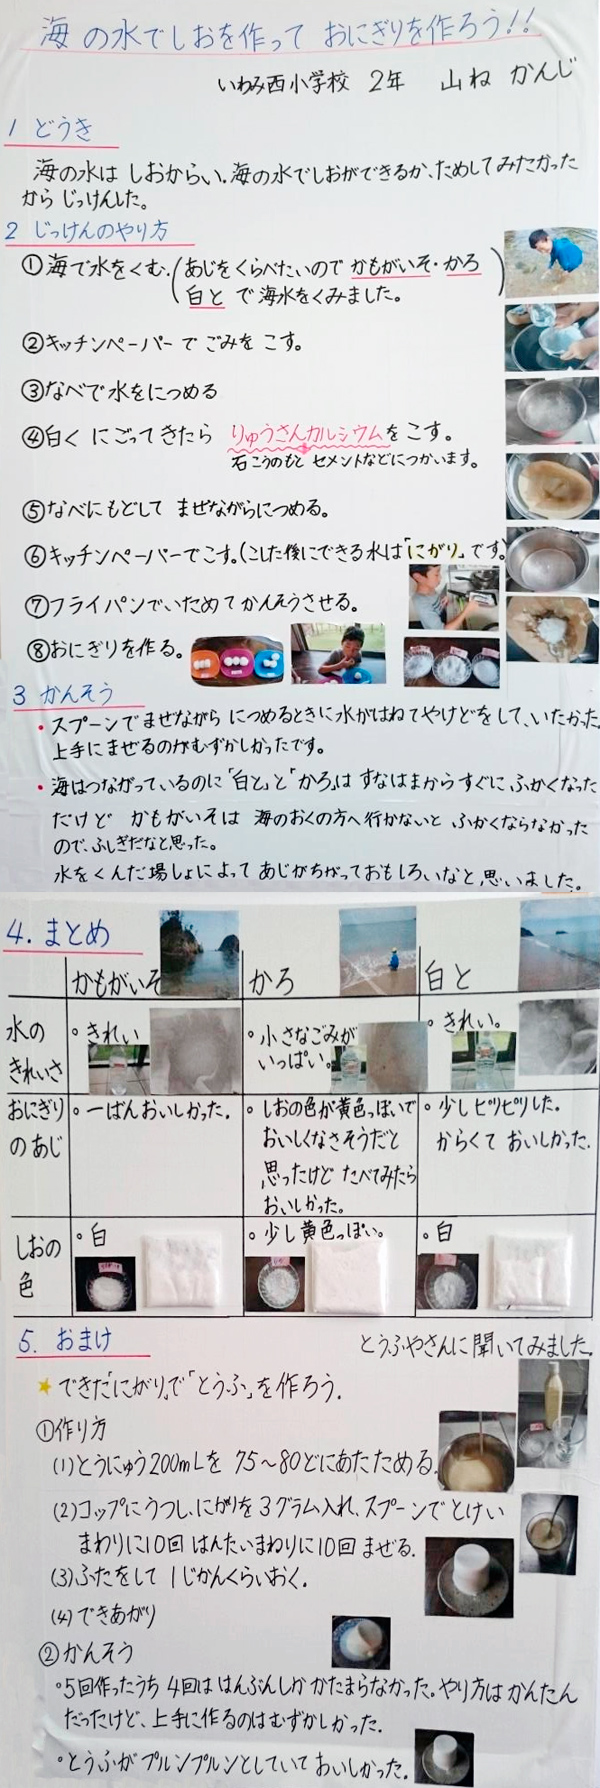 海の水でしおを作って おにぎりを作ろう!!
いわみ西小学校 2年 山ね かんじ
1 どうき
海の水は しおからい。海の水でしおができるか、ためしてみたかった
から じっけんした。
2 じっけんのやり方
①海で水をくむ。(あじをくらべたいので かもがいそ・かろ
白と で海水をくみました。)
②キッチンペーパー で ごみを こす。
③なべで水をにつめる
④白く にごってきたら りゅうさんカルシウムをこす。
石こうのもと セメントなどにつかいます。
⑤なべにもどして まぜながらにつめる。
⑥キッチンペーパーでこす。(こした後にできる水は「にがり」です)
⑦フライパンでいためてかんそうさせる。
⑧おにぎりを作る。
3 かんそう
・スプーンでまぜながら につめるときに水がはねてやけどをして、いたかった。
上手にまぜるのがむずかしかったです。
・海はつながっているのに「白と」と「かろ」は すなはまからすぐに ふかくなった
だけど かもがいそは 海のおくの方へ行かないと ふかくならなかった
ので、ふしぎだなと思った。
水をくんだ場しょによって あじがちがっておもしろいなと思いました。
4. まとめ
かもがいそ かろ 白と
水の
きれいさ
○きれい
○小さなごみが
いっぱい。
○きれい。
おにぎり
のあじ
○一ばんおいしかった。
○しおの色が黄色っぽいで
おいしくなさそうだと
思ったけど たべてみたら
おいしかった。
○少しピリピリした。
からくて おいしかった。
しおの
色
○白
○少し黄色っぽい。
○白
5. おまけ
とうふやさんに聞いてみました。
★できた「にがり」で「とうふ」を作ろう。
①作り方
(1)とうにゅう200mLを 75~80どにあたためる。
(2)コップにうつし、にがりを3グラム入れ、スプーンでとけい
まわりに10回 はんたいまわりに10回 まぜる。
(3)ふたをして 1じかんくらいおく。
(4)できあがり
②かんそう
○5回作ったうち 4回は はんぶんしか かたまらなかった。やり方はかんたん
だったけど、上手に作るのはむずかしかった。
○とうふがプルンプルンとしていておいしかった。